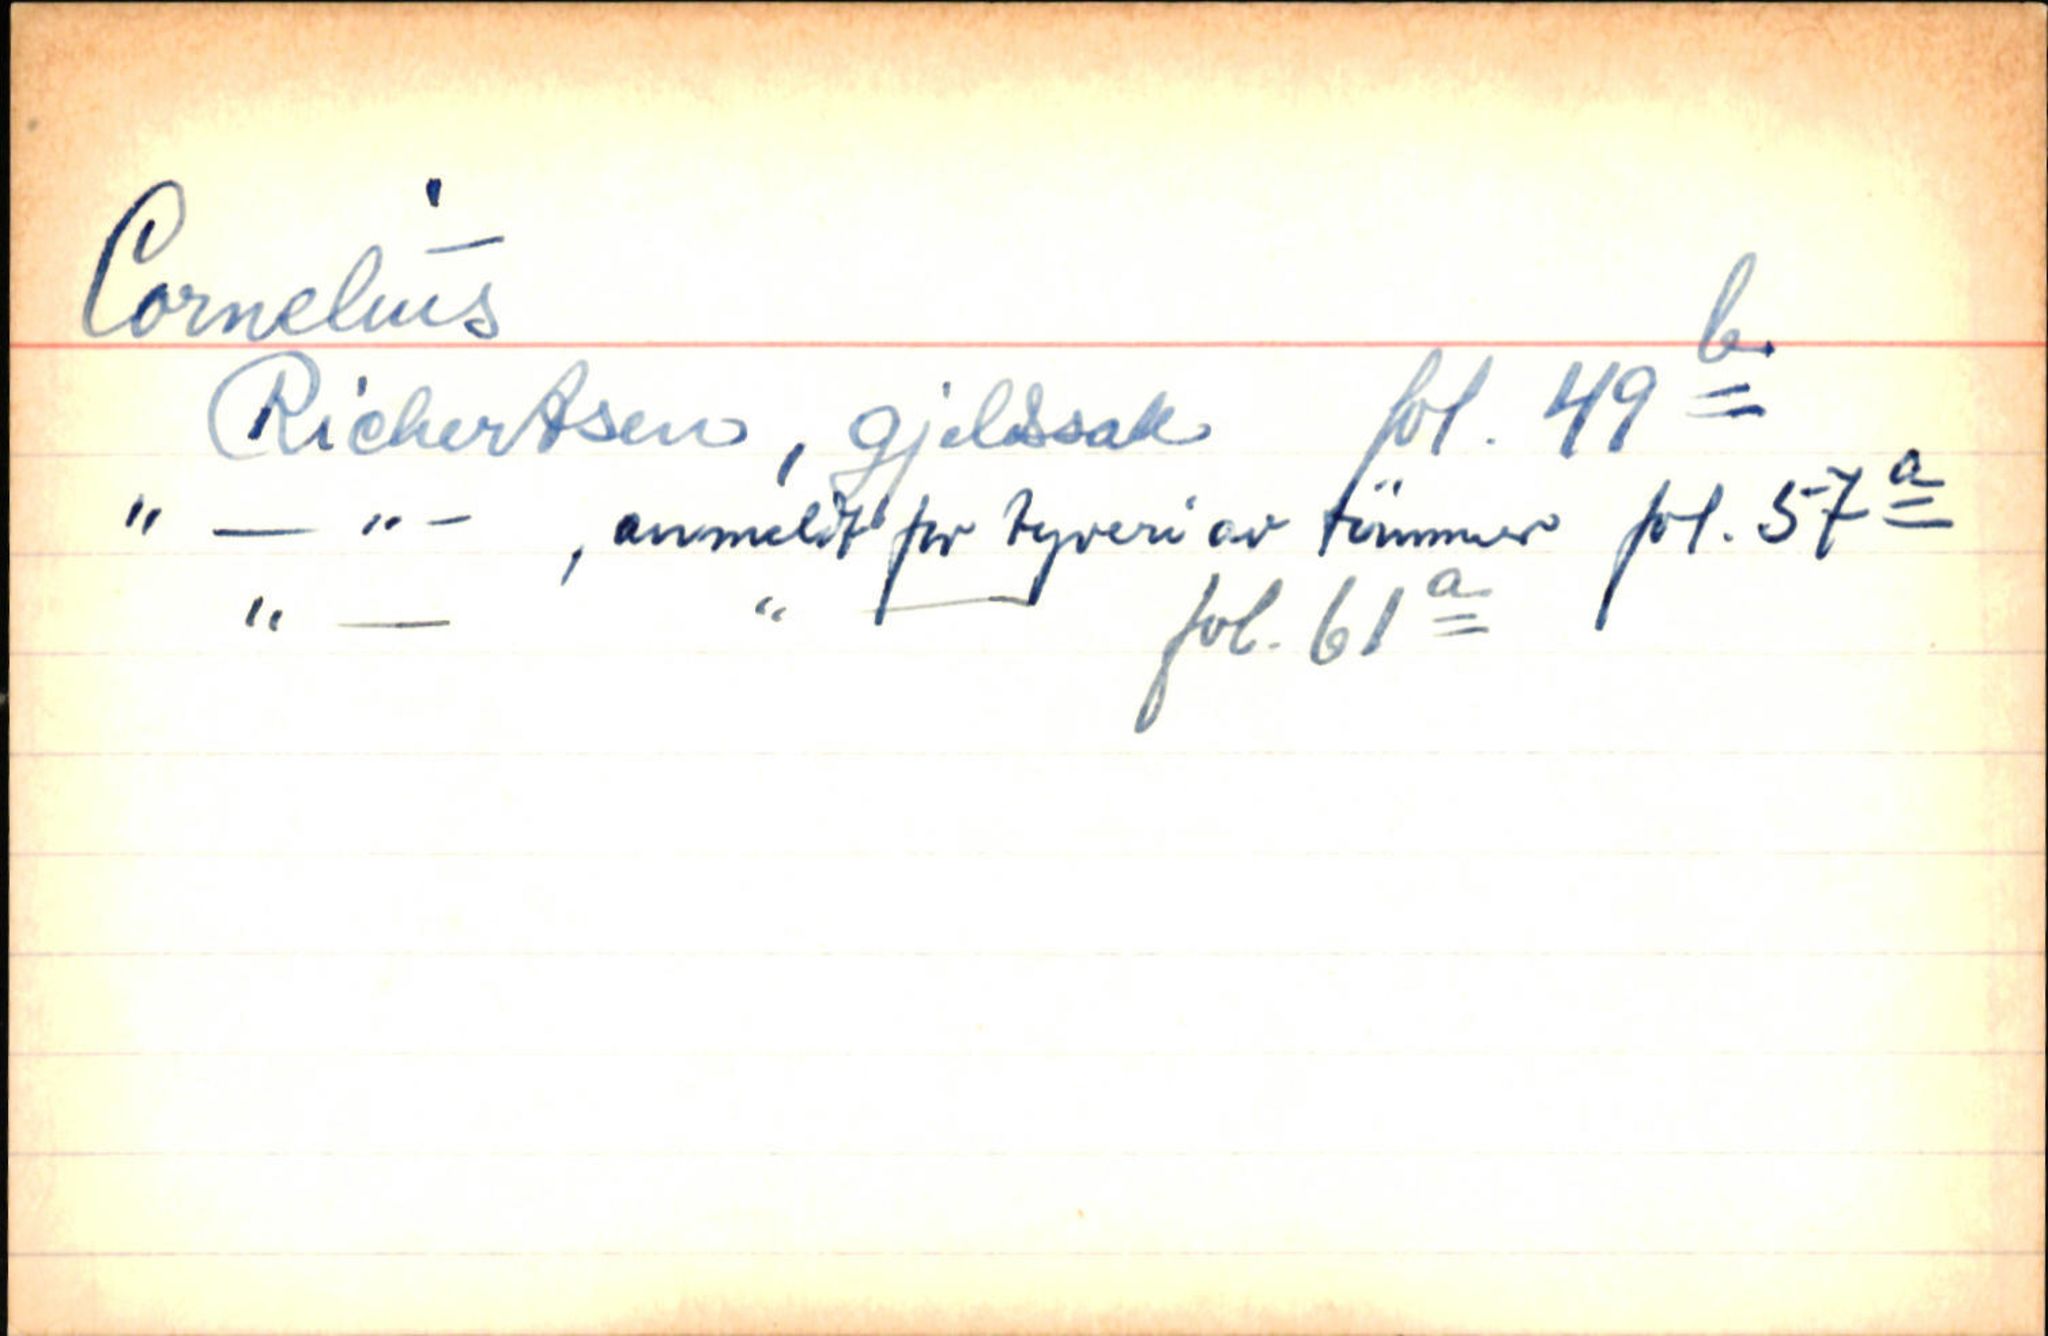 Cornelius
Richertsen, gjeldssak fol. 49 b.
" — " — , anmeldt for tyveri av tömmer fol. 57 a
" — " — fol. 61 a